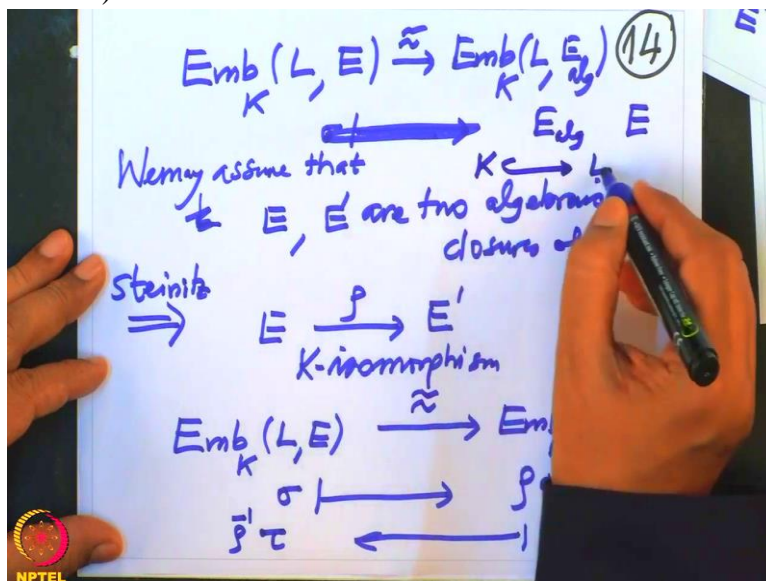 Emb_K (L, E) ≈→ Emb_K (L, E_alg) 14
E_alg E
We may assume that K ↪ L
E, E' are two algebraic
closures
Steinitz
⇒ E —ρ→ E'
K-isomorphism
Emb_K (L, E) ≈→ Emb
σ ↦ ρ
ρ⁻¹ τ ↤
NPTEL
E